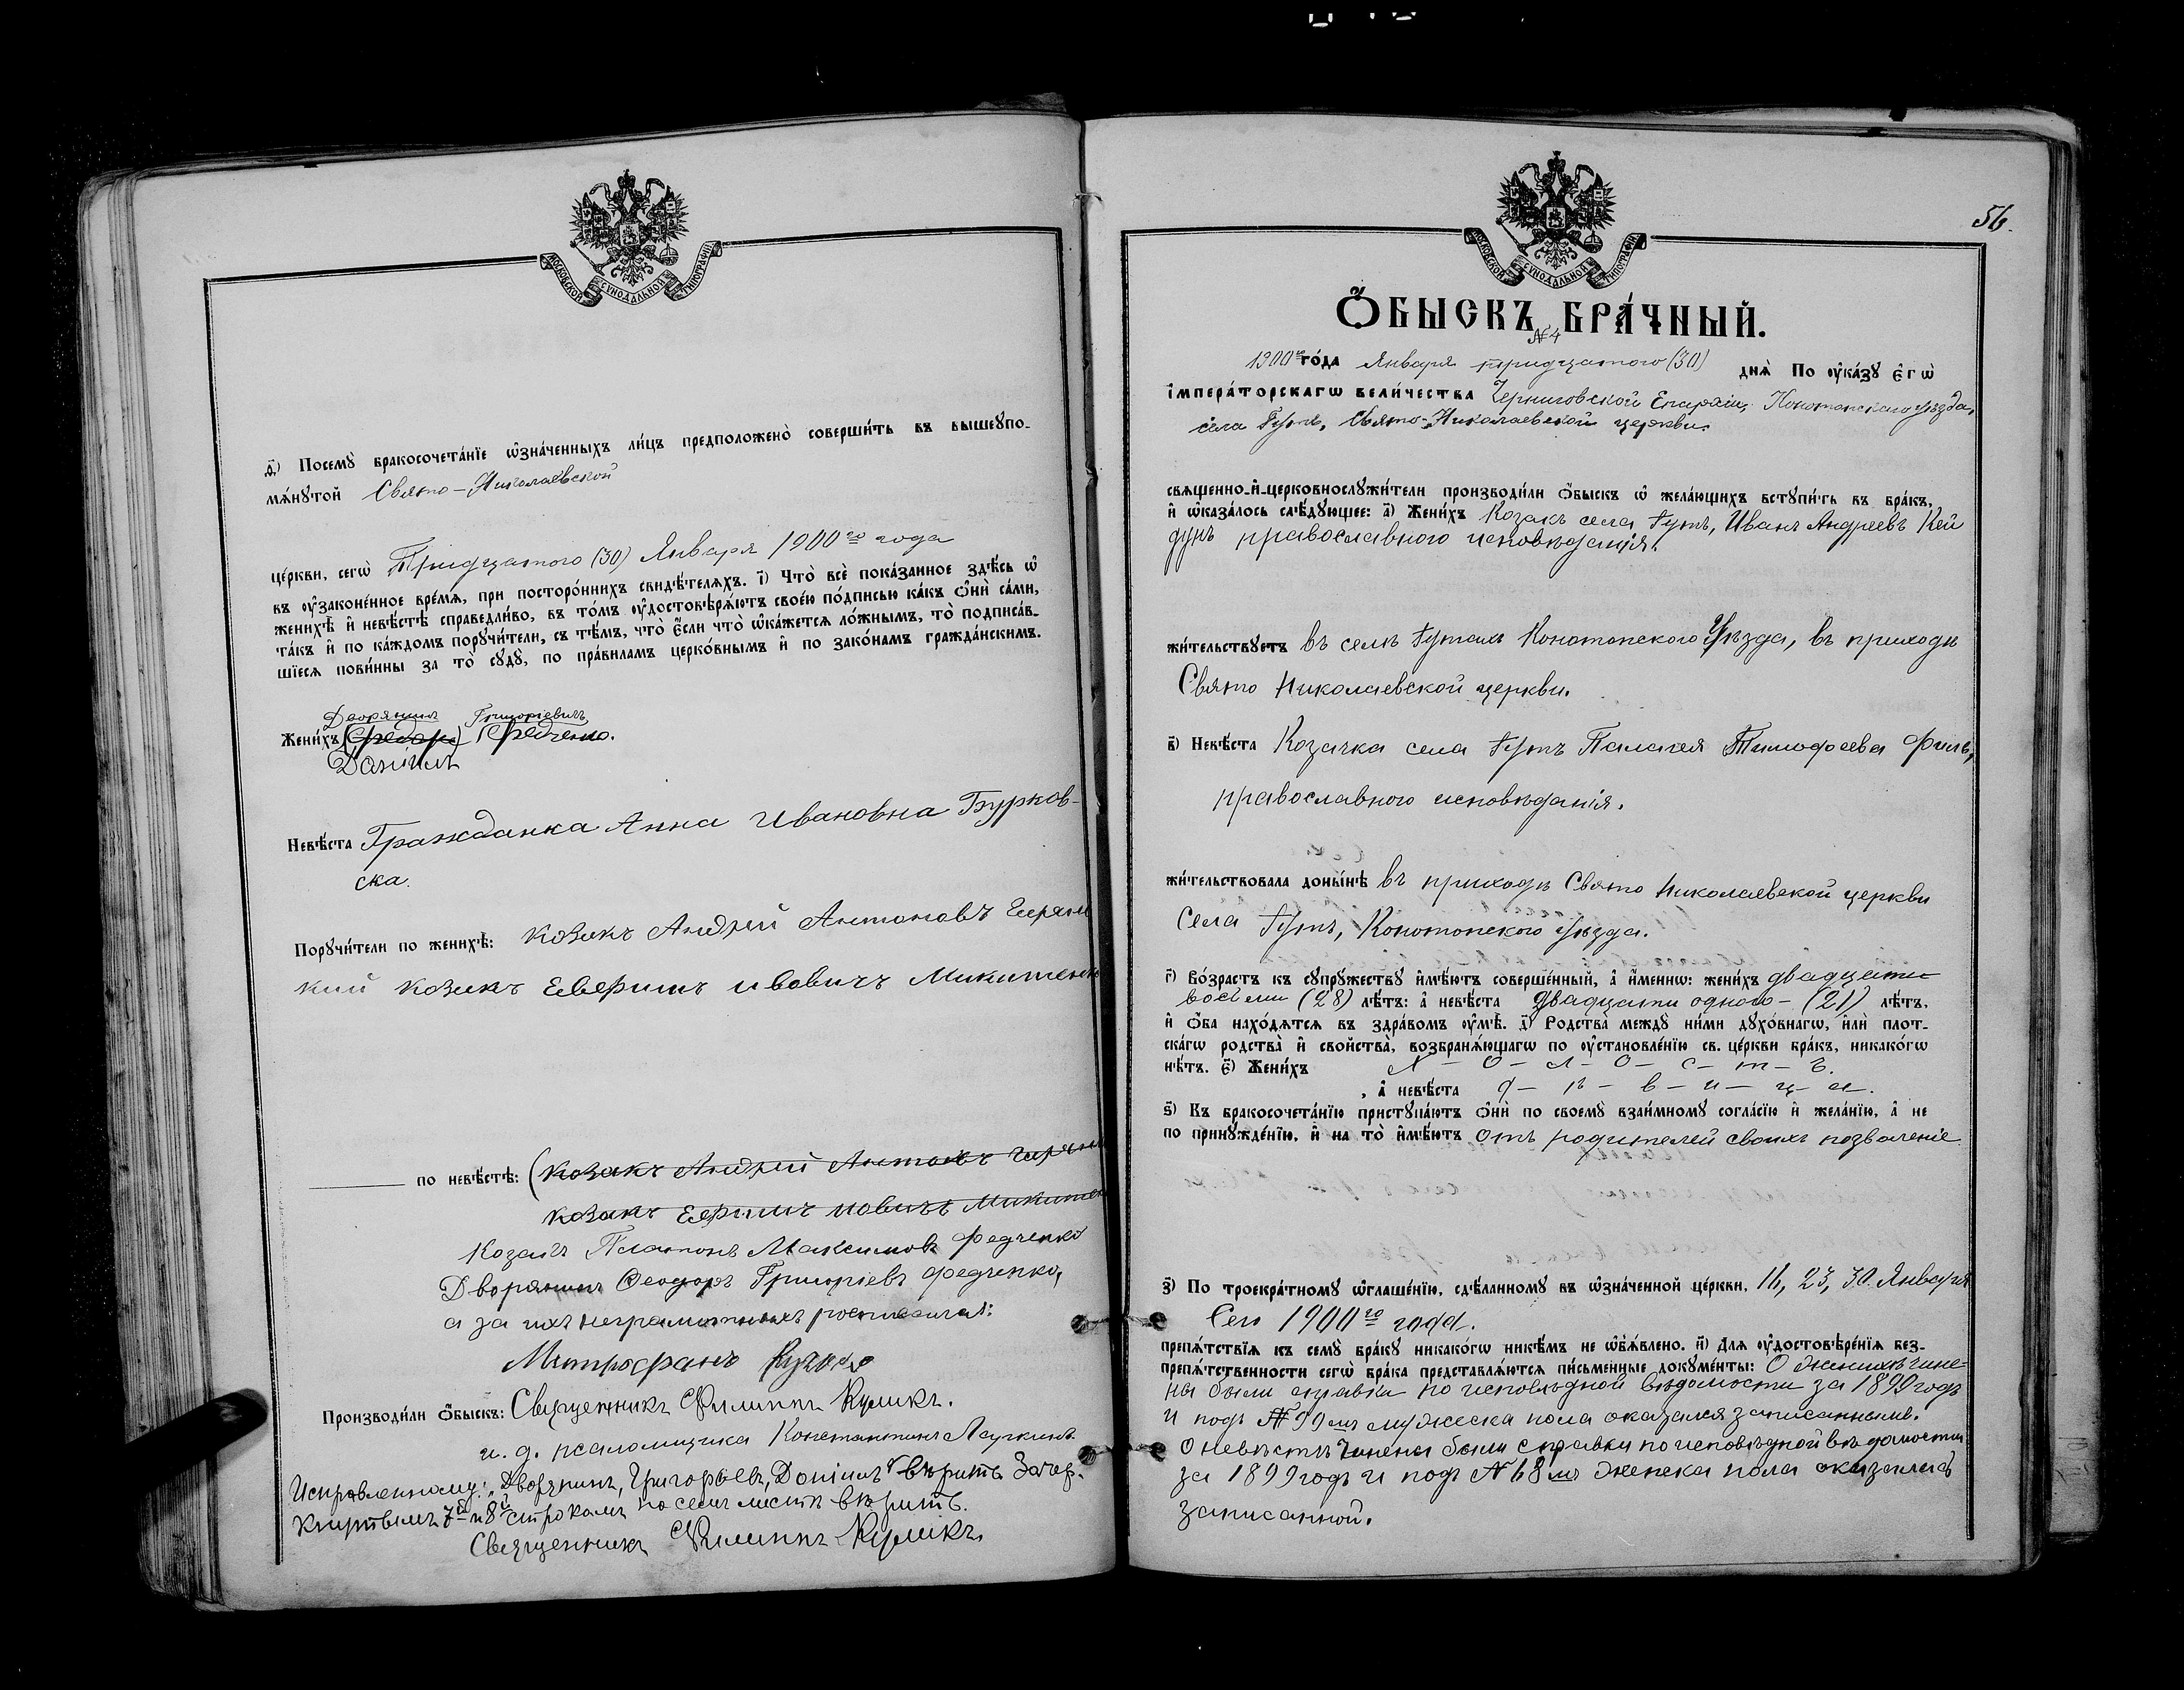 МОСКОВСКОЙ СѴНОДАЛЬНОЙ ТИПОГРАФІИ
ѳ҃) Посемꙋ̀ бракосочета́нїе ѡ҆зна́ченныхъ ли́цъ предположено̀ соверши́ть въ вышеꙋпо-
мѧ́нꙋтой Свято-Николаевской
це́ркви, сегѡ̀ Тридцатого (30) Января 1900го года
въ ᲂу҆зако́ненное вре́мѧ, при посторо́ннихъ свидѣ́телѧхъ. і҃) Что̀ всѐ пока́занное здѣ́сь ѡ҆
женихѣ̀ и҆ невѣ́стѣ справедли́во, въ то́мъ ᲂу҆достовѣрѧ́ютъ свое́ю по́дписью ка́къ ѻ҆нѝ са́ми,
та́къ и҆ по ка́ждомъ порꙋчи́тели, съ тѣ́мъ, что̀ є҆́сли что̀ ѡ҆ка́жетсѧ ло́жнымъ, то̀ подписа́в-
шїесѧ пови́нны за то̀ сꙋдꙋ̀, по пра́виламъ церко́внымъ и҆ по зако́намъ гражда́нскимъ.
Дворянинъ Григоріевичъ
Жени́хъ (Федоръ) Федченко.
Даніилъ
Невѣ́ста Гражданка Анна Ивановна Бурков-
ска.
Порꙋчи́тели по женихѣ̀: козакъ Андрей Антоновъ
кий козакъ Микитенк
по невѣ́стѣ: (козакъ Андрей Антоновъ
козакъ Ефимъ Микитен
Козакъ Платонъ Максимовъ Федченко
Дворянинъ Феодоръ Григоріевъ Федченко,
а за ихъ неграмотныхъ росписался:
Митрофанъ
Производи́ли ѻ҆́быскъ: Священникъ Филиппъ Куликъ.
и. д. псаломщика Константинъ
Исправленному: „Дворянинъ, Григорьевъ, Даніилъ“ вѣрить. Зачер-
кнутымъ 7й и 8й строкамъ на семъ листѣ вѣрить.
Священникъ Филиппъ Куликъ.
56.
МОСКОВСКОЙ СѴНОДАЛЬНОЙ ТИПОГРАФІИ
Ѻ҆́БЫСКЪ БРА́ЧНЫЙ.
№ 4
1900го го́да Января тридцатого (30) днѧ̀ По ᲂу҆ка́зꙋ є҆гѡ̀
і҆мпера́торскагѡ вели́чества Черниговской Епархіи, Конотопского уѣзда,
села Гутъ, Свято-Николаевской церкви.
свѧще́нно-и҆-церковнослꙋжи́тели производи́ли ѻ҆́быскъ ѡ҆ жела́ющихъ встꙋпи́ть въ бра́къ,
и҆ ѡ҆каза́лось слѣ́дꙋющее: а҃) Жени́хъ Козакъ села Гутъ, Иванъ Андреевъ Кей
дунъ православного исповѣданія.
жи́тельствꙋетъ въ селѣ Гутахъ Конотопского Уѣзда, въ приходѣ
Свято Николаевской церкви.
в҃) Невѣ́ста Козачка села Гутъ Палагея Тимофеева Филь,
православного исповѣданія.
жи́тельствовала доны́нѣ въ приходѣ Свято Николаевской церкви
Села Гутъ, Конотопского уѣзда.
г҃) Во́зрастъ къ сꙋпрꙋ́жествꙋ и҆мѣ́ютъ соверше́нный, а҆ и҆́менно: жени́хъ двадцати
восьми (28) лѣ́тъ: а҆ невѣ́ста двадцати одного - (21) лѣ́тъ,
и҆ ѻ҆́ба нахо́дѧтсѧ въ здра́вомъ ᲂу҆мѣ̀. д҃) Родства̀ междꙋ̀ ни́ми дꙋхо́внагѡ, и҆лѝ плот-
ска́гѡ родства̀ и҆ сво́йства̀, возбранѧ́ющагѡ по ᲂу҆становле́нїю св. це́ркви бра́къ, никако́гѡ
нѣ́тъ. є҃) Жени́хъ х - о - л - о - с - т - ъ.
, а҆ невѣ́ста д - ѣ - в - и - ц - а -.
ѕ҃) Къ бракосочета́нїю пристꙋпа́ютъ ѻ҆нѝ по своемꙋ̀ взаи́мномꙋ согла́сїю и҆ жела́нїю, а҆ не
по принꙋжде́нїю, и҆ на то̀ и҆мѣ́ютъ отъ родителей своихъ позволеніе
з҃) По троекра́тномꙋ ѡ҆глаше́нїю, сдѣ́ланномꙋ въ ѡ҆зна́ченной це́ркви, 16, 23, 30. Января
Сего 1900го года.
препѧ́тствїѧ къ семꙋ̀ бра́кꙋ никако́гѡ никѣ́мъ не ѡ҆б̾ѧ́влено. и҃) Для ᲂу҆достовѣре́нїѧ без-
препѧ́тственности сегѡ̀ бра́ка представлѧ́ютсѧ пи́сьменные докꙋме́нты: О женихѣ чине-
ны были справки по исповѣдной вѣдомости за 1899 годъ
и подъ № 99мъ мужеска пола оказался записаннымъ.
О невѣстѣ чинены были справки по исповѣдной вѣдомости
за 1899 годъ и подъ № 68мъ женска пола оказалась
записанной.